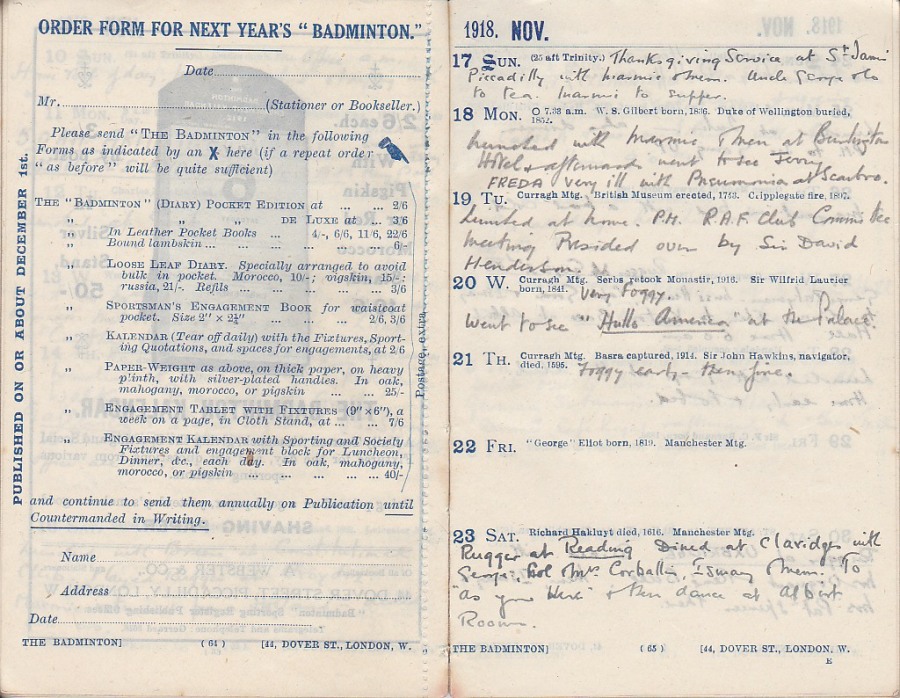 ORDER FORM FOR NEXT YEAR'S "BADMINTON."
Date
Mr. (Stationer or Bookseller.)
Please send "THE BADMINTON" in the following
Forms as indicated by an X here (if a repeat order
"as before" will be quite sufficient)
THE "BADMINTON" (DIARY) POCKET EDITION at ... ... 2/6
" " " DE LUXE at ... 3/6
" In Leather Pocket Books ... 4/-, 6/6, 11/6, 22/6
" Bound lambskin ... ... ... ... ... 6/-
" LOOSE LEAF DIARY. Specially arranged to avoid
bulk in pocket. Morocco, 10/-; pigskin, 15/-;
russia, 21/-. Refils ... ... ... ... ... 3/6
" SPORTSMAN'S ENGAGEMENT BOOK for waistcoat
pocket. Size 2" × 2¾" ... ... ... 2/6, 3/6
" KALENDAR (Tear off daily) with the Fixtures, Sport-
ing Quotations, and spaces for engagements, at 2/6
" PAPER-WEIGHT as above, on thick paper, on heavy
plinth, with silver-plated handles. In oak,
mahogany, morocco, or pigskin ... ... ... 25/-
" ENGAGEMENT TABLET WITH FIXTURES (9" × 6"), a
week on a page, in Cloth Stand, at ... ... 7/6
" ENGAGEMENT KALENDAR with Sporting and Society
Fixtures and engagement block for Luncheon,
Dinner, &c., each day. In oak, mahogany,
morocco, or pigskin ... ... ... ... ... 40/-
and continue to send them annually on Publication until
Countermanded in Writing.
Name
Address
Date
THE BADMINTON] (64) [44, DOVER ST., LONDON, W.
PUBLISHED ON OR ABOUT DECEMBER 1st.
Postage extra.
1918. NOV.
17 SUN. (25 aft Trinity.) Thanksgiving Service at St
Piccadilly with & Mem. Uncle George also
to tea. to supper.
18 MON. O 7.33 a.m. W. S. Gilbert born, 1836. Duke of Wellington buried,
1852.
with & Mem at Burlington
Hotel & afterwards went to see
FREDA very ill with Pneumonia at Scarbro.
19 TU. Curragh Mtg. British Museum erected, 1753. Cripplegate fire, 1897.
Lunched at home. P.M. R.A.F. Club Committee
meeting Presided over by Sir David
Henderson.
20 W. Curragh Mtg. Serbs retook Monastir, 1916. Sir Wilfrid Laurier
born, 1841. Very Foggy.
Went to see "Hullo America" at the Palace.
21 TH. Curragh Mtg. Basra captured, 1914. Sir John Hawkins, navigator,
died, 1595. Foggy early - then fine.
22 FRI. "George" Eliot born, 1819. Manchester Mtg.
23 SAT. Richard Hakluyt died, 1616. Manchester Mtg.
Rugger at Reading Dined at Claridges with
George, Col & Mrs Corballis, & Mem. To
"as you were" & then dance at Albert
Rooms.
THE BADMINTON] (65) [44, DOVER ST., LONDON, W.
E